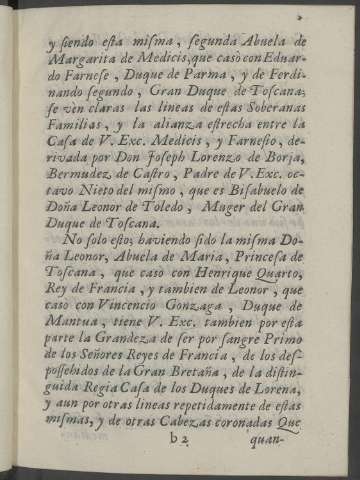 y siendo esta misma, segunda Abuela de
Margarita de Medicis, que casò con Eduar-
do Farnese, Duque de Parma, y de Ferdi-
nando segundo, Gran Duque de Toscana;
se vèn claras las lineas de estas Soberanas
Familias, y la alianza estrecha entre la
Casa de V. Exc. Medicis, y Farnesio, de-
rivada por Don Joseph Lorenzo de Borja,
Bermudez de Castro, Padre de V. Exc. oc-
tavo Nieto del mismo, que es Bisabuelo de
Doña Leonor de Toledo, Muger del Gran
Duque de Toscana.
No solo esto; haviendo sido la misma Do-
ña Leonor, Abuela de Maria, Princesa de
Toscana, que casò con Henrique Quarto,
Rey de Francia, y tambien de Leonor, que
casò con Vincencio Gonzaga, Duque de
Mantua, tiene V. Exc. tambien por esta
parte la Grandeza de ser por sangre Primo
de los Señores Reyes de Francia, de los des-
possehidos de la Gran Bretaña, de la distin-
guida Regia Casa de los Duques de Lorena,
y aun por otras lineas repetidamente de estas
mismas, y de otras Cabezas coronadas Que
b 2 quan-